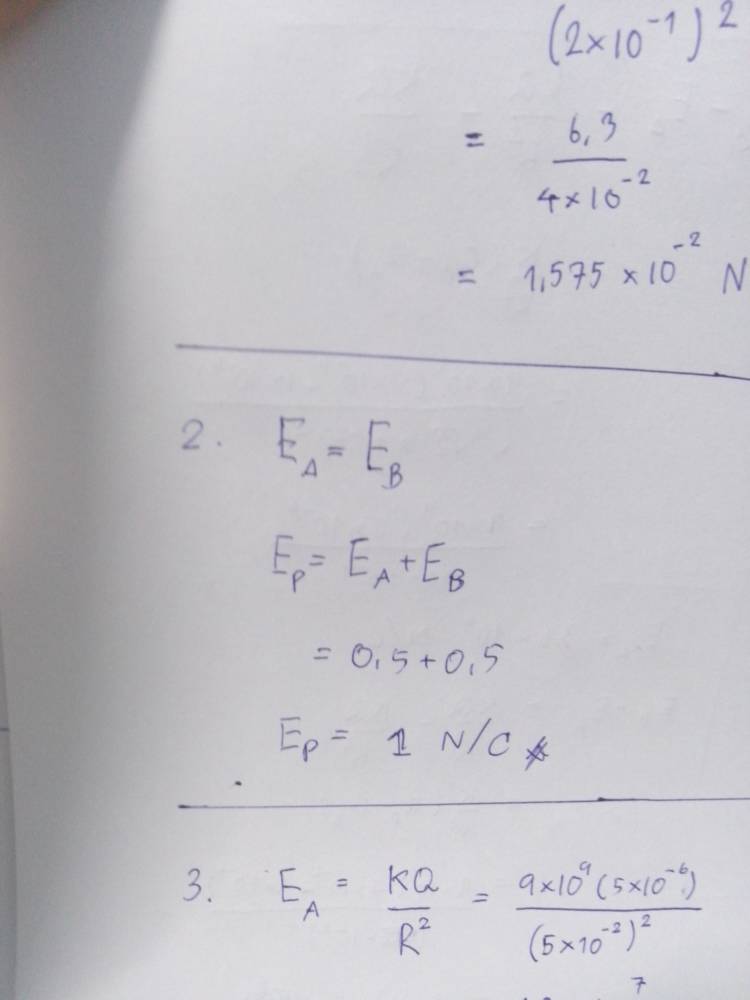 (2×10⁻¹)²
= 6,3 / 4×10⁻²
= 1,575 ×10⁻² N
2. E_A = E_B
E_P = E_A + E_B
= 0,5 + 0,5
E_P = 1 N/C
3. E_A = KQ / R² = 9×10⁹ (5×10⁻⁶) / (5×10⁻²)²
7